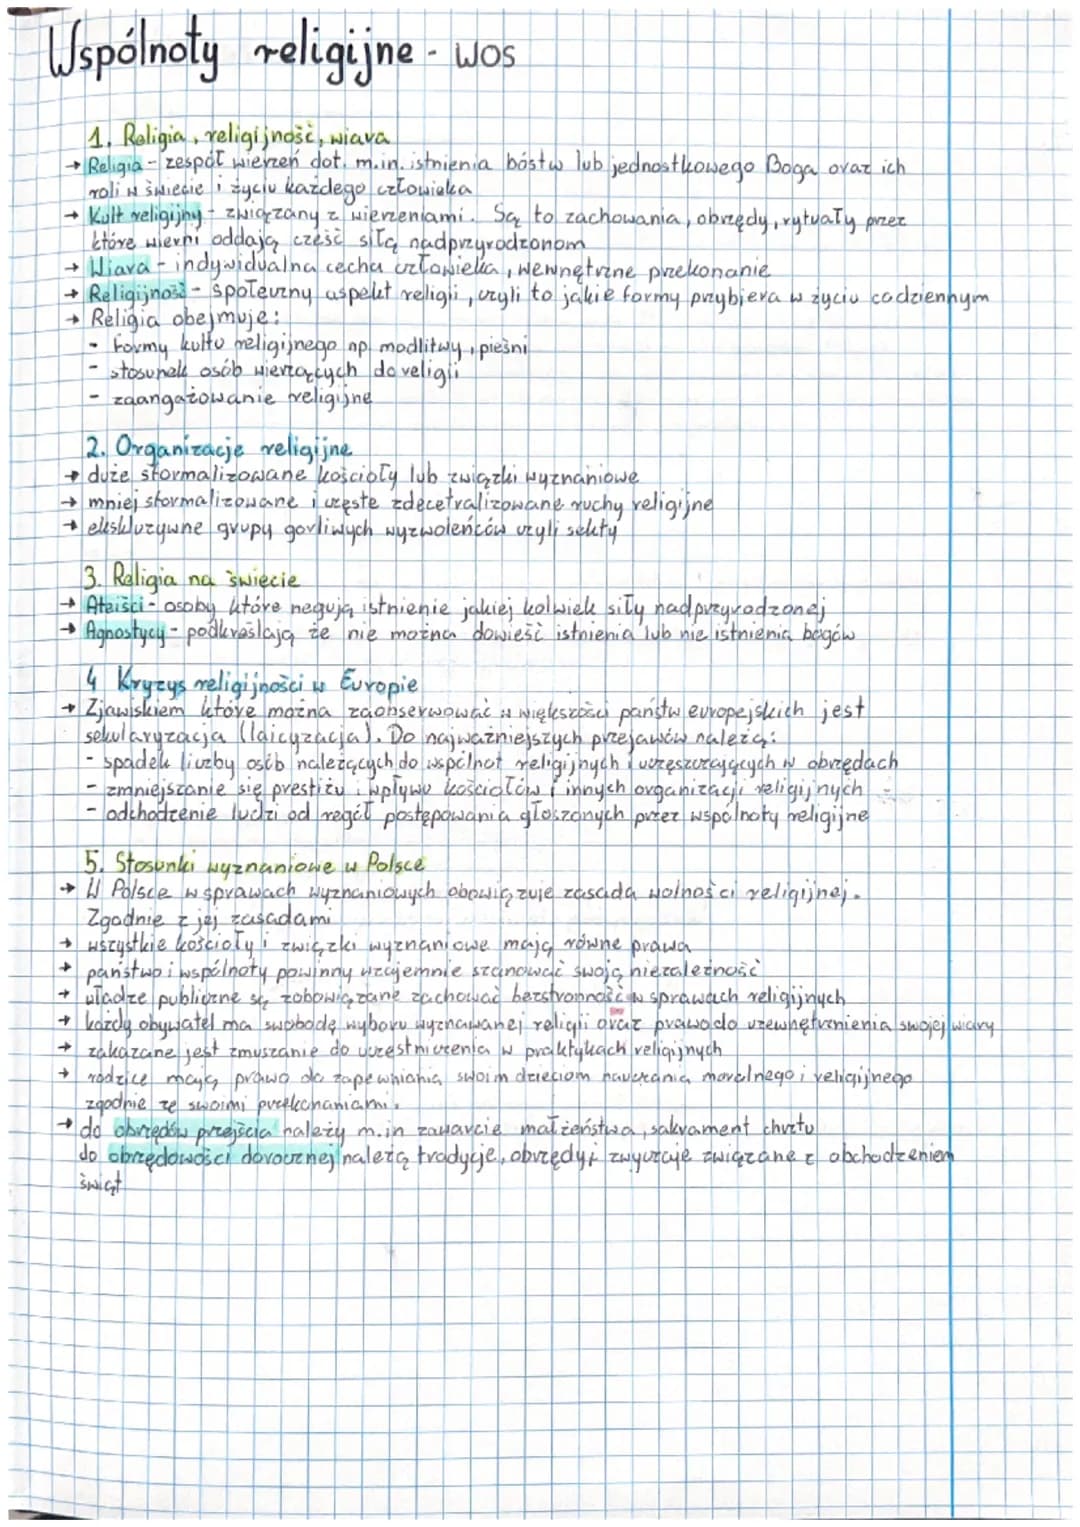 Wspólnoty religijne - WOS
1. Religia, religijność, wiara
→ Religia - zespół wierzeń dot. m.in. istnienia bóstw lub jednostkowego Boga oraz ich
roli w świecie i życiu każdego człowieka
→ Kult religijny - związany z wierzeniami. Są to zachowania, obrzędy, rytuały przez
które wierni oddają cześć siłą nadprzyrodzonom
→ Wiara - indywidualna cecha człowieka, wewnętrzne przekonanie
→ Religijność - społeczny aspekt religii, czyli to jakie formy przybiera w życiu codziennym
→ Religia obejmuje:
- formy kultu religijnego np. modlitwy, pieśni
- stosunek osób wierzących do religii
- zaangażowanie religijne
2. Organizacje religijne
→ duże sformalizowane kościoły lub związki wyznaniowe
→ mniej sformalizowane i częste zdecetralizowane ruchy religijne
→ ekskluzywne grupy gorliwych wyzwoleńców czyli sekty
3. Religia na świecie
→ Ateiści - osoby które negują istnienie jakiej kolwiek siły nadprzyrodzonej
→ Agnostycy - podkreślają że nie można dowieść istnienia lub nie istnienia bogów
4 Kryzys religijności w Europie
→ Zjawiskiem które można zaobserwować w większości państw europejskich jest
sekularyzacja (laicyzacja). Do najważniejszych przejawów należą:
- spadek liczby osób należących do wspólnot religijnych i uczęszczających w obrzędach
- zmniejszanie się prestiżu i wpływu kościołów i innych organizacji religijnych
- odchodzenie ludzi od reguł postępowania głoszonych przez wspólnoty religijne
5. Stosunki wyznaniowe w Polsce
→ W Polsce w sprawach wyznaniowych obowiązuje zasada wolności religijnej.
Zgodnie z jej zasadami
→ wszystkie kościoły i związki wyznaniowe mają równe prawa
→ państwo i wspólnoty powinny wzajemnie szanować swoją niezależność
→ władze publiczne są zobowiązane zachować bezstronność w sprawach religijnych
→ każdy obywatel ma swobodę wyboru wyznawanej religii oraz prawo do uzewnętrznienia swojej wiary
→ zakazane jest zmuszanie do uczestniczenia w praktykach religijnych
→ rodzice mają prawo do zapewniania swoim dzieciom nauczania moralnego i religijnego
zgodnie ze swoimi przekonaniami.
→ do obrzędów przejścia należy m.in zawarcie małżeństwa, sakrament chrztu
do obrzędowości dorocznej należą tradycje, obrzędy i zwyczaje związane z obchodzeniem
świąt